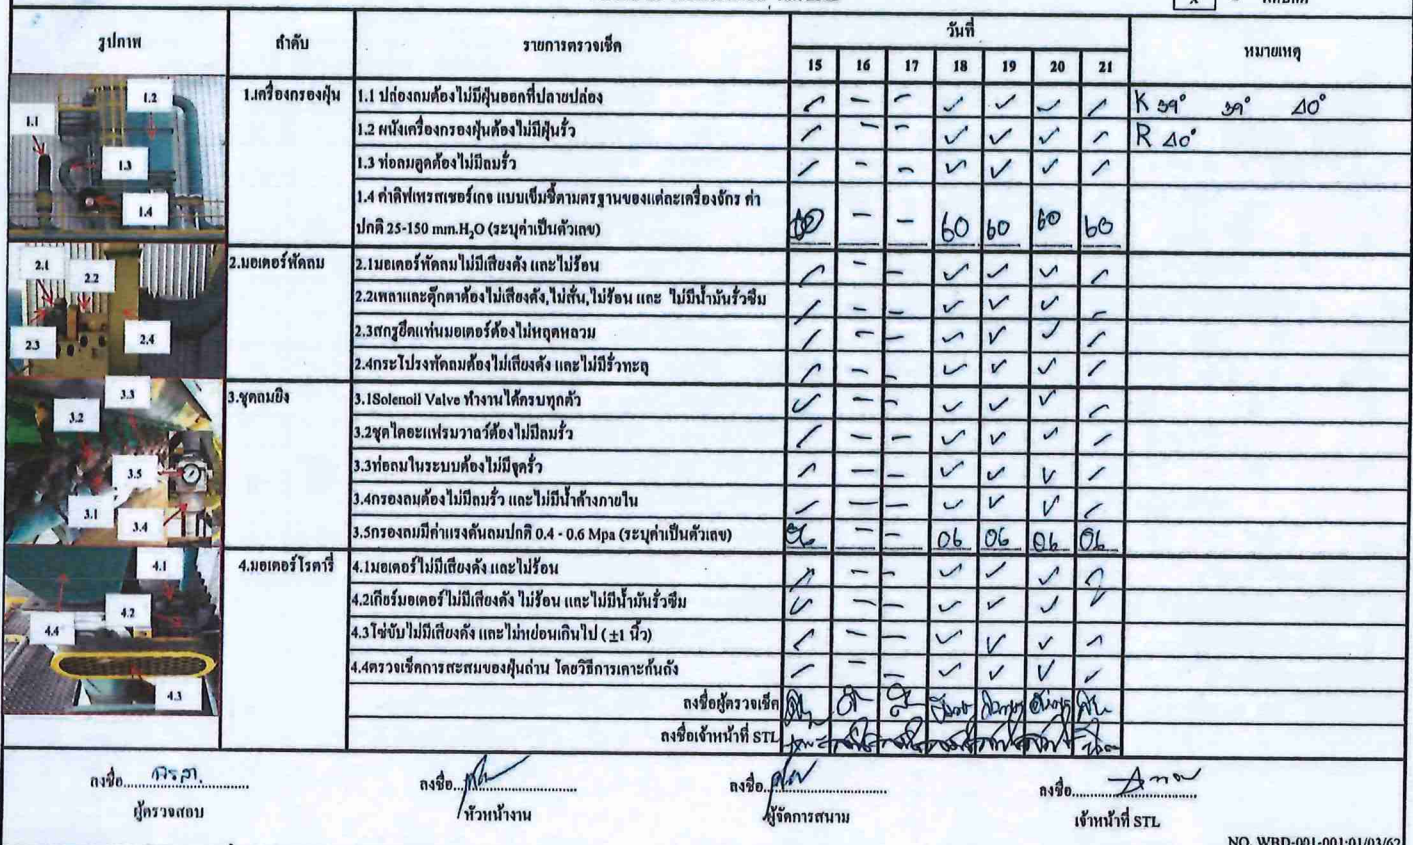 x
รูปภาพ ลำดับ รายการตรวจเช็ค วันที่ หมายเหตุ
15 16 17 18 19 20 21
1.เครื่องกรองฝุ่น 1.1 ปล่องลมต้องไม่มีฝุ่นออกที่ปลายปล่อง ✓ - - ✓ ✓ ✓ ✓ K 39° 39° 40°
1.2 ผนังเครื่องกรองฝุ่นต้องไม่มีฝุ่นรั่ว ✓ - - ✓ ✓ ✓ ✓ R 40°
1.3 ท่อลมดูดต้องไม่มีลมรั่ว ✓ - - ✓ ✓ ✓ ✓
1.4 ค่าดิฟเฟรสเชอร์เกจ แบบเข็มชี้ตามตรฐานของแต่ละเครื่องจักร ค่า
ปกติ 25-150 mm.H₂O (ระบุค่าเป็นตัวเลข) - - 60 60 60 60
1.1
1.2
1.3
1.4
2.มอเตอร์พัดลม 2.1มอเตอร์พัดลมไม่มีเสียงดัง และไม่ร้อน ✓ - - ✓ ✓ ✓ ✓
2.2เพลาและตุ๊กตาต้องไม่เสียงดัง,ไม่สั่น,ไม่ร้อน และ ไม่มีน้ำมันรั่วซึม ✓ - - ✓ ✓ ✓ ✓
2.3สกรูยึดแท่นมอเตอร์ต้องไม่หลุดหลวม ✓ - - ✓ ✓ ✓ ✓
2.4กระโปรงพัดลมต้องไม่เสียงดัง และไม่มีรั่วทะลุ ✓ - - ✓ ✓ ✓ ✓
2.1
2.2
2.3
2.4
3.ชุดลมยิง 3.1Solenoil Valve ทำงานได้ครบทุกตัว ✓ - - ✓ ✓ ✓ ✓
3.2ชุดไดอะแฟรมวาลว์ต้องไม่มีลมรั่ว ✓ - - ✓ ✓ ✓ ✓
3.3ท่อลมในระบบต้องไม่มีจุดรั่ว ✓ - - ✓ ✓ ✓ ✓
3.4กรองลมต้องไม่มีลมรั่ว และไม่มีน้ำค้างภายใน ✓ - - ✓ ✓ ✓ ✓
3.5กรองลมมีค่าแรงดันลมปกติ 0.4 - 0.6 Mpa (ระบุค่าเป็นตัวเลข) 06 - - 06 06 06 06
3.3
3.2
3.5
3.1
3.4
4.มอเตอร์โรตารี่ 4.1มอเตอร์ไม่มีเสียงดัง และไม่ร้อน ✓ - - ✓ ✓ ✓ ✓
4.2เกียร์มอเตอร์ไม่มีเสียงดัง ไม่ร้อน และไม่มีน้ำมันรั่วซึม ✓ - - ✓ ✓ ✓ ✓
4.3โซ่ขับไม่มีเสียงดัง และไม่หย่อนเกินไป (±1 นิ้ว) ✓ - - ✓ ✓ ✓ ✓
4.4ตรวจเช็คการสะสมของฝุ่นถ่าน โดยวิธีการเคาะก้นถัง ✓ - - ✓ ✓ ✓ ✓
4.1
4.2
4.4
4.3
ลงชื่อผู้ตรวจเช็ค
ลงชื่อเจ้าหน้าที่ STL
ลงชื่อ ลงชื่อ ลงชื่อ ลงชื่อ
ผู้ตรวจสอบ หัวหน้างาน ผู้จัดการสนาม เจ้าหน้าที่ STL
NO. WBD-001-001:01/03/62